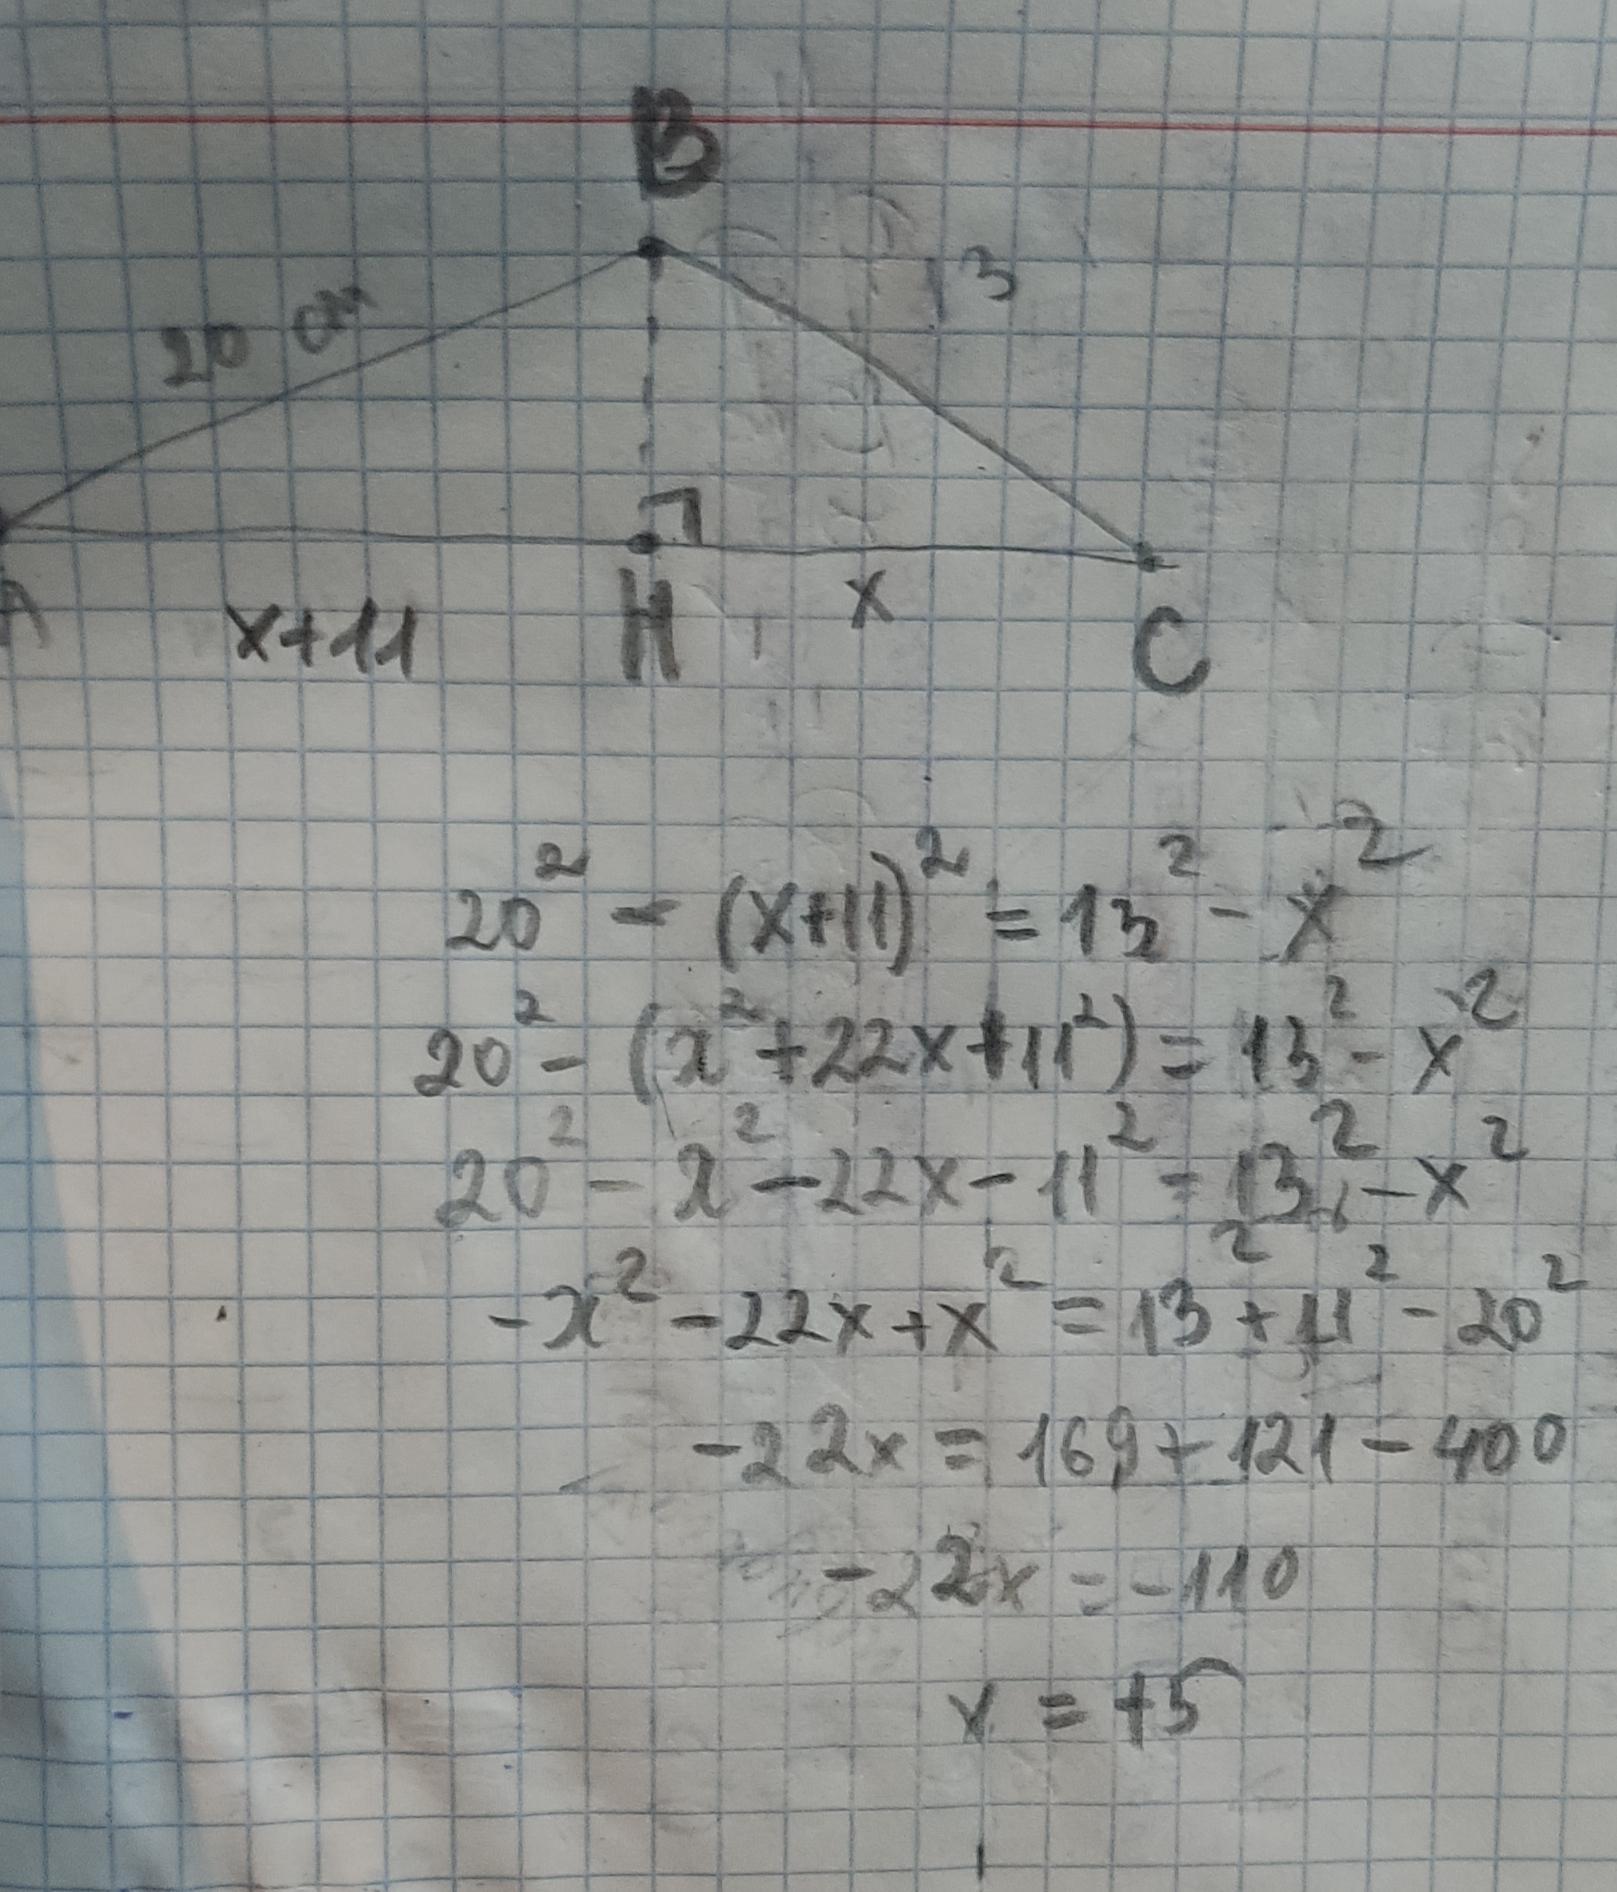 B
20 cm 13
A x+11 H x C
20² - (x+11)² = 13² - x²
20² - (x² + 22x + 11²) = 13² - x²
20² - x² - 22x - 11² = 13² - x²
-x² - 22x + x² = 13² + 11² - 20²
-22x = 169 + 121 - 400
-22x = -110
x = +5